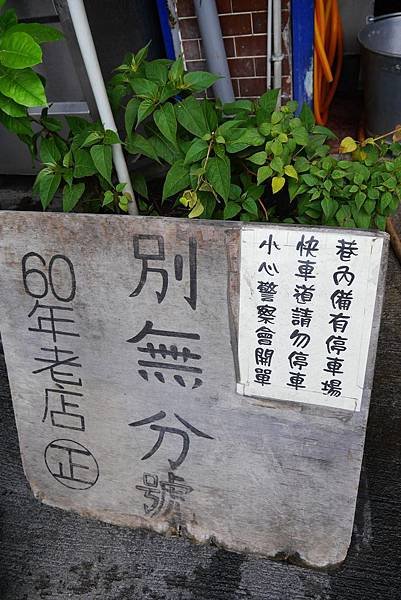 巷內備有停車場
快車道請勿停車
小心警察會開單
別無分號
60年老店正